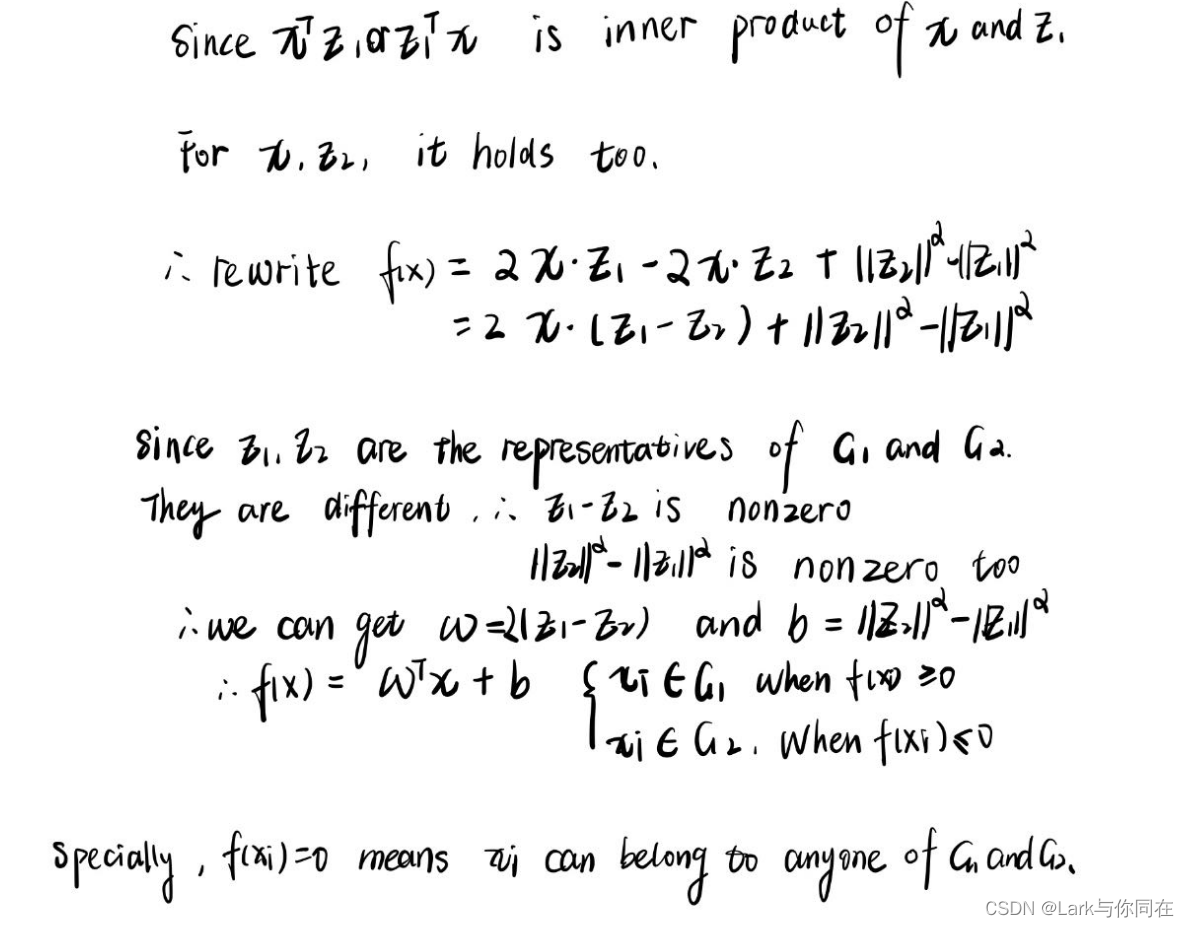 Since xᵀz₁ or z₁ᵀx is inner product of x and z₁
For x, z₂, it holds too.
∴ rewrite f(x) = 2x·z₁ - 2x·z₂ + ||z₂||² - ||z₁||²
= 2x·(z₁ - z₂) + ||z₂||² - ||z₁||²
Since z₁, z₂ are the representatives of G₁ and G₂.
They are different, ∴ z₁-z₂ is nonzero
||z₂||² - ||z₁||² is nonzero too
∴ we can get ω=2(z₁-z₂) and b = ||z₂||² - ||z₁||²
∴ f(x) = ωᵀx + b { xi ∈ G₁ when f(xi) ≥0
xi ∈ G₂, when f(xi)≤0
Specially, f(xi)=0 means xi can belong to anyone of G₁ and G₂.
CSDN @Lark与你同在